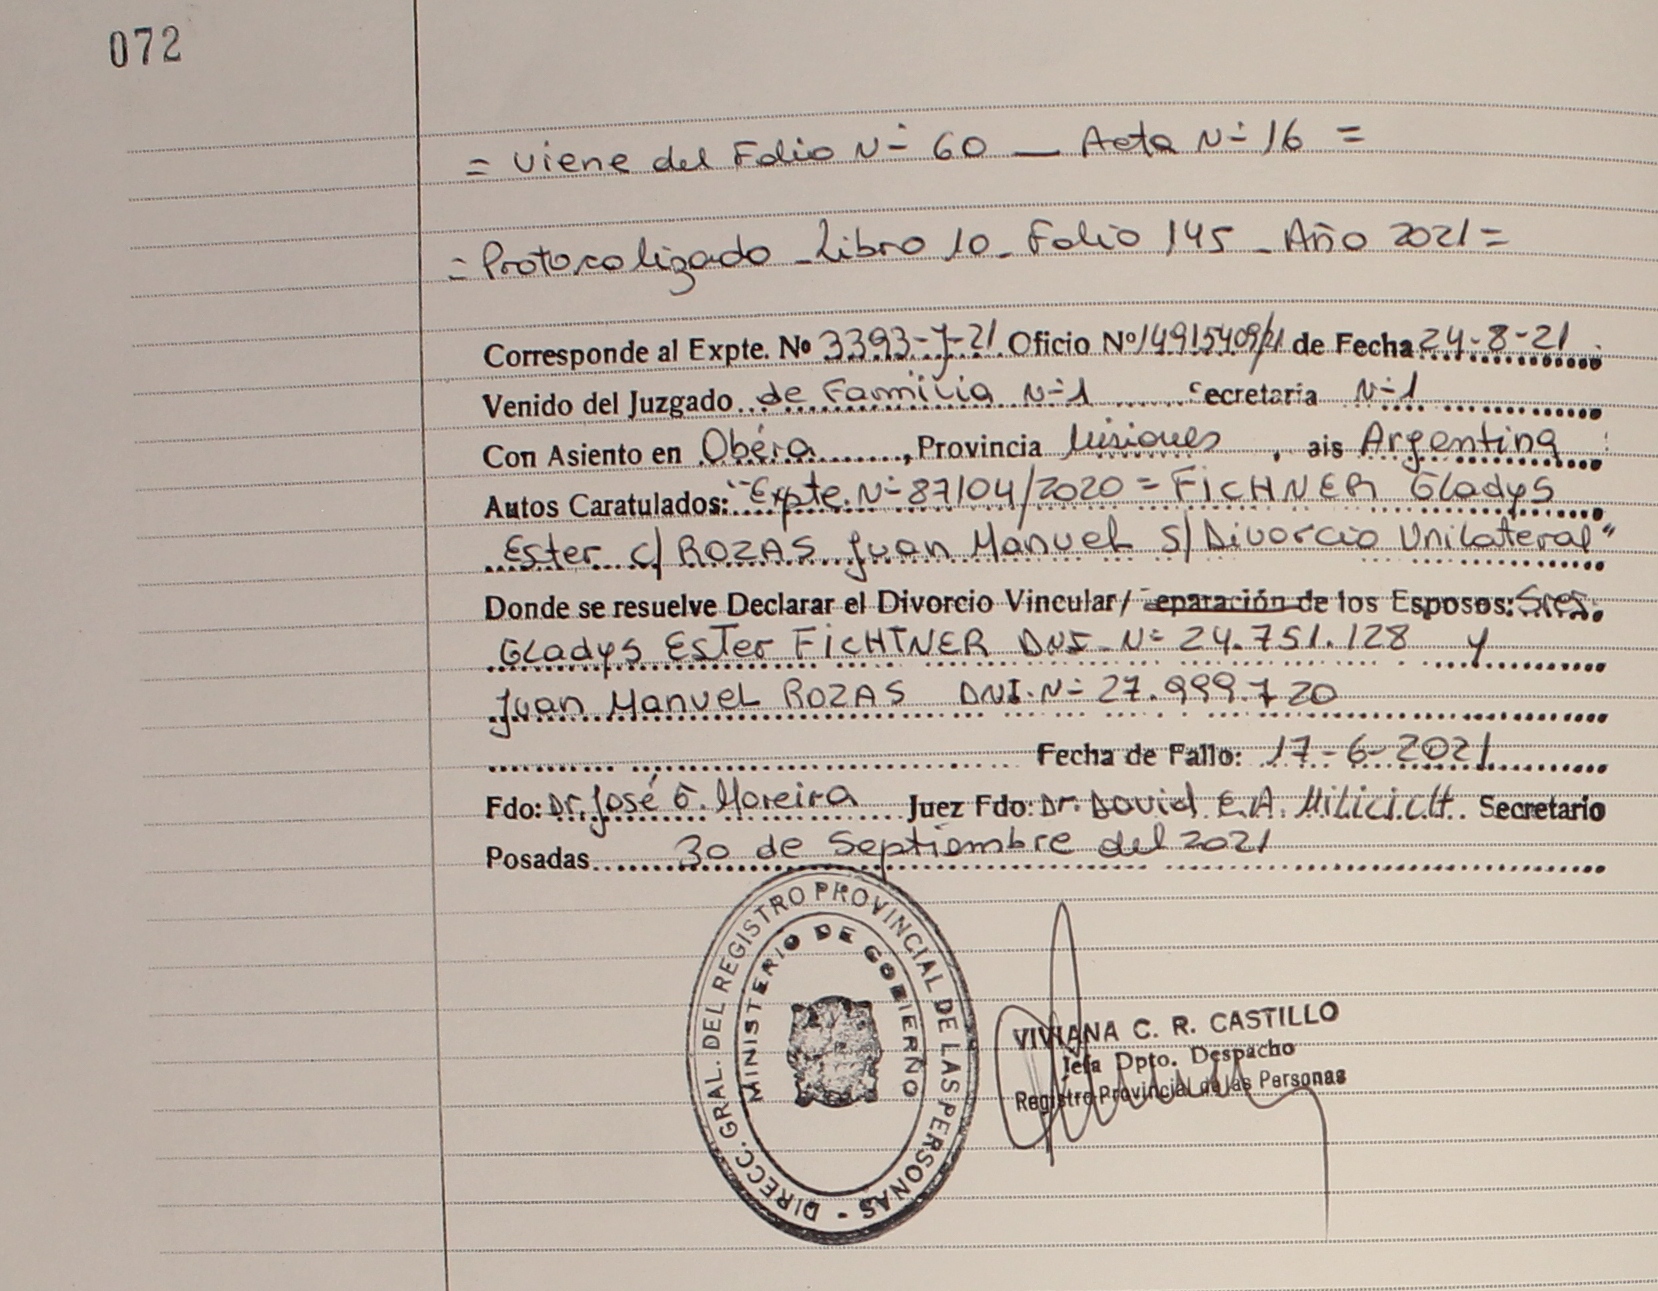 072
= Viene del Folio Nº 60 _ Acta Nº 16 =
= Protocolizado _ Libro 10 _ Folio 145 _ Año 2021 =
Corresponde al Expte. Nº 3393-J-21 Oficio Nº 14915409/21 de Fecha 24-8-21
Venido del Juzgado de Familia Nº 1 ecretaria Nº 1
Con Asiento en Oberá, Provincia Misiones, ais Argentina
Autos Caratulados: "Expte. Nº 87104/2020 = FICHNER Gladys
Ester c/ ROZAS Juan Manuel s/ Divorcio Unilateral"
Donde se resuelve Declarar el Divorcio Vincular/ eparación de los Esposos: Sres.
Gladys Ester FICHTNER DNI. Nº 24.751.128 y
Juan Manuel ROZAS DNI. Nº 27.999.720
Fecha de Fallo: 17-6-2021
Fdo: Dr. José G. Moreira Juez Fdo: Dr. David E.A. Secretario
Posadas 30 de Septiembre del 2021
DIRECC. GRAL. DEL REGISTRO PROVINCIAL DE LAS PERSONAS -
MINISTERIO DE GOBIERNO
VIVIANA C. R. CASTILLO
Jefa Dpto. Despacho
Registro Provincial de las Personas